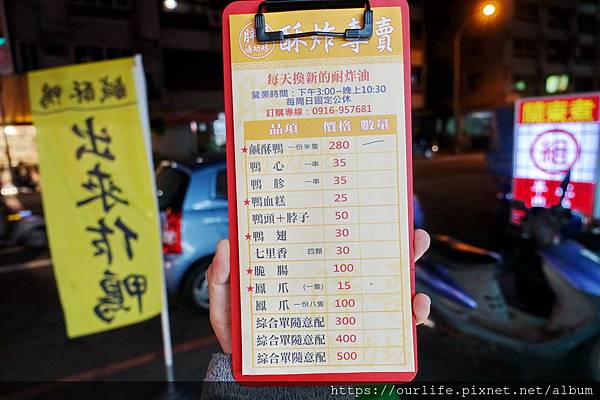 胖 滷功坊 酥炸專賣
每天換新的耐炸油
營業時間：下午3:00~晚上10:30
每周日固定公休
訂購專線：0916-957681
品項 價格 數量
★鹹酥鴨 一份半隻 280
鴨心 一串 35
鴨胗 一串 35
★鴨血糕 25
鴨頭+脖子 50
★鴨翅 30
七里香 四顆 30
★脆腸 100
★鳳爪 (一隻) 15
鳳爪 一份八隻 100
綜合單隨意配 300
綜合單隨意配 400
綜合單隨意配 500
鹹酥鴨
出來作鴨
https://ourlife.pixnet.net/album